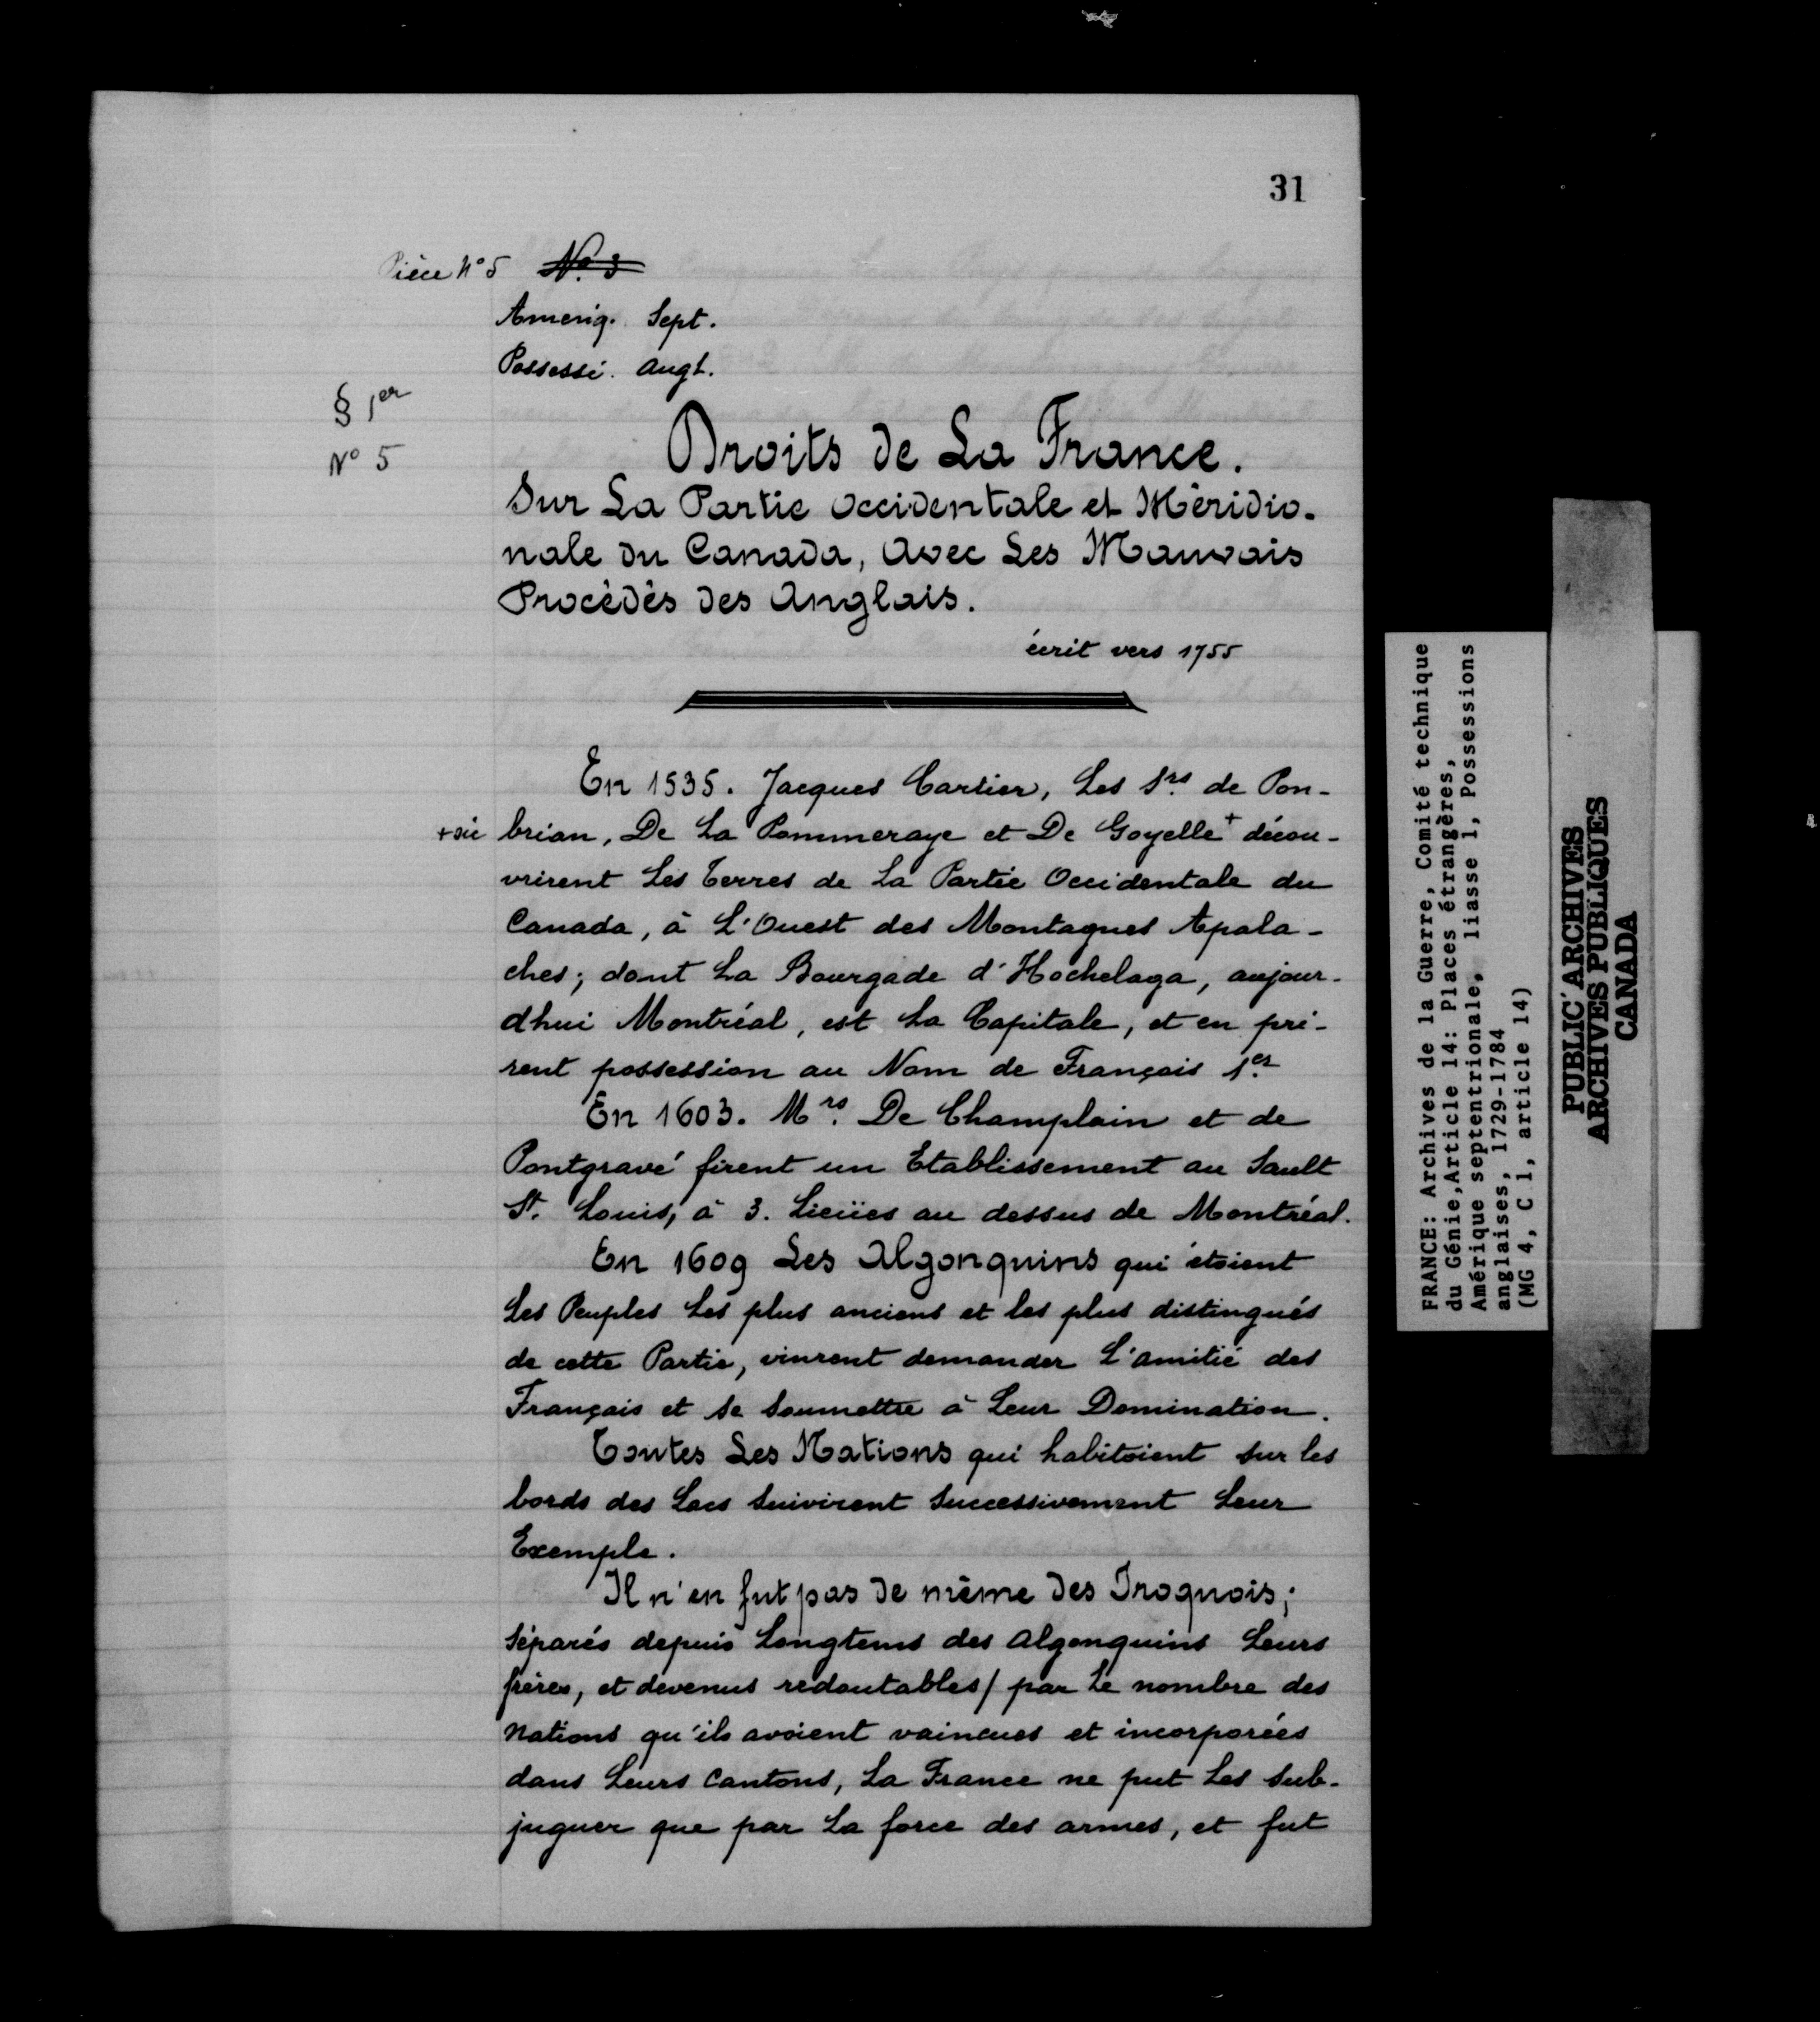 31
Pièce N° 5 N° 3
Ameriq. Sept.
Possessi. Angl.
§ 1er
N° 5
Droits de La France.
Sur La Partie Occidentale et Méridio-
nale du Canada, Avec Les Mauvais
Procédés des Anglais.
écrit vers 1755
En 1535. Jacques Cartier, Les Srs. de Pon-
+ sic brian, De La Pommeraye et De Goyelle + décou-
vrirent Les Terres de La Partie Occidentale du
Canada, à L'Ouest des Montagnes Apala-
ches; dont La Bourgade d'Hochelaga, aujour-
dhui Montréal, est La Capitale, et en pri-
rent possession au Nom de François 1er.
En 1603. Mrs. De Champlain et de
Pontgravé firent un Etablissement au Sault
St. Louis, à 3. Lieües au dessus de Montréal.
En 1609 Les Algonquins qui étoient
Les Peuples Les plus anciens et les plus distingués
de cette Partie, vinrent demander L'amitié des
Français et Se Soumettre à Leur Domination.
Toutes Les Nations qui habitoient sur les
bords des Lacs Suivirent Successivement Leur
Exemple.
Il n'en fut pas de même des Iroquois;
Séparés depuis Longtems des Algonquins Leurs
frères, et devenus redoutables/ par Le nombre des
Nations qu'ils avoient vaincues et incorporées
dans Leurs Cantons, La France ne put Les Sub-
juguer que par La force des armes, et fut
FRANCE: Archives de la Guerre, Comité technique
du Génie, Article 14: Places étrangères,
Amérique septentrionale, liasse 1, Possessions
anglaises, 1729-1784
(MG 4, C 1, article 14)
PUBLIC ARCHIVES
ARCHIVES PUBLIQUES
CANADA